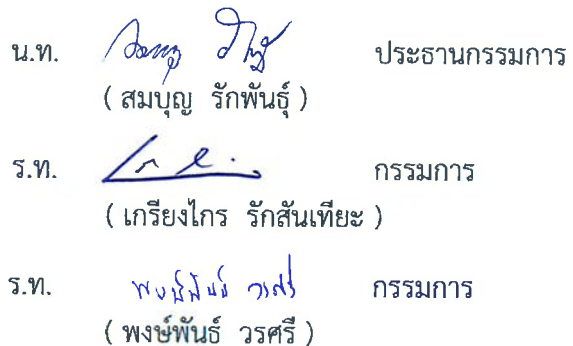 น.ท. ประธานกรรมการ
( สมบุญ รักพันธุ์ )
ร.ท. กรรมการ
( เกรียงไกร รักสันเทียะ )
ร.ท. พงษ์พันธ์ วรศรี กรรมการ
( พงษ์พันธ์ วรศรี )